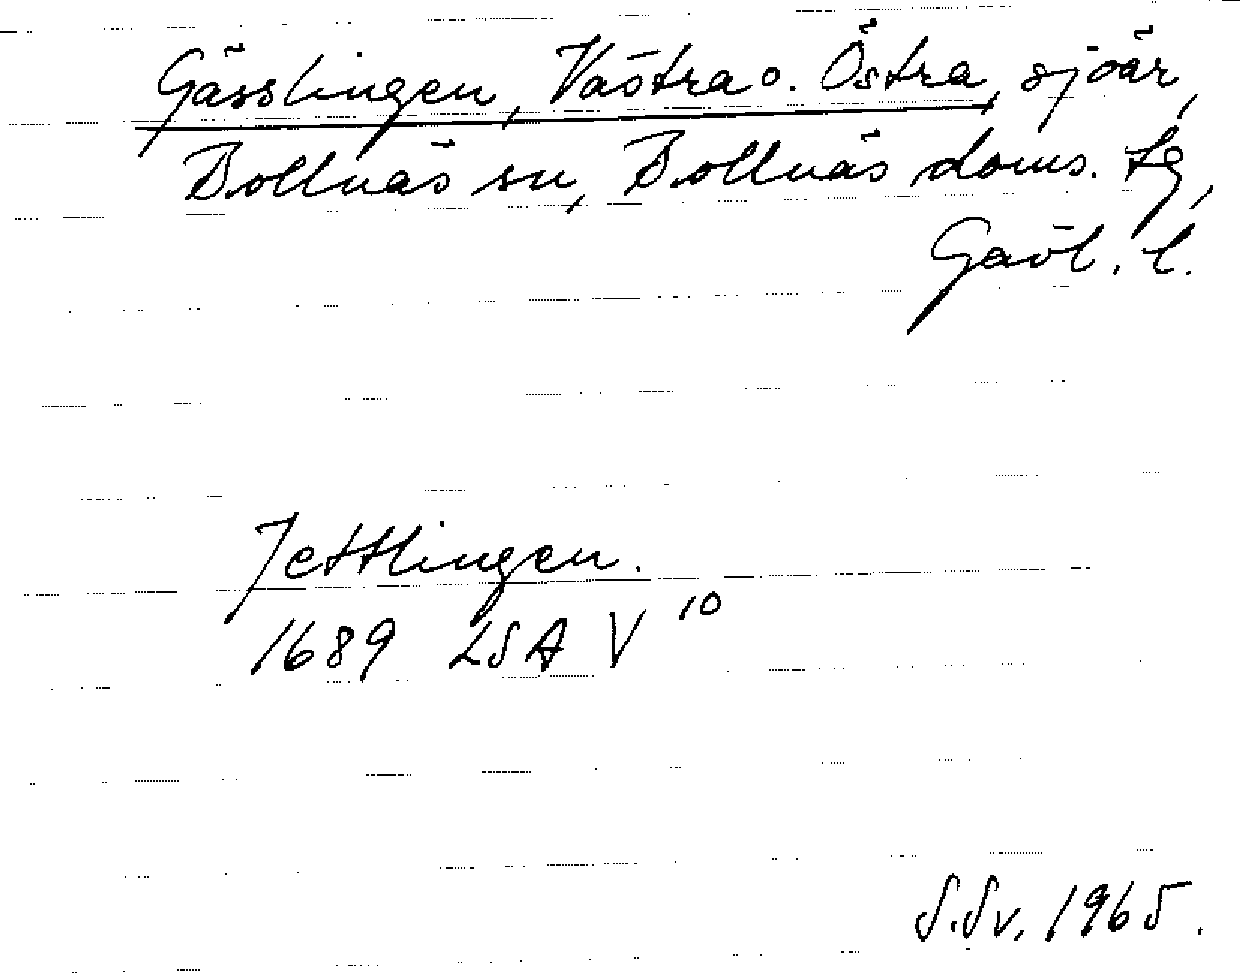 Gässlingen, Västra o. Östra, sjöar,
Bollnäs sn, Bollnäs doms. tg,
Gävl. l.
Jettlingen.
1689 LSA V 10
S.Sv. 1965.